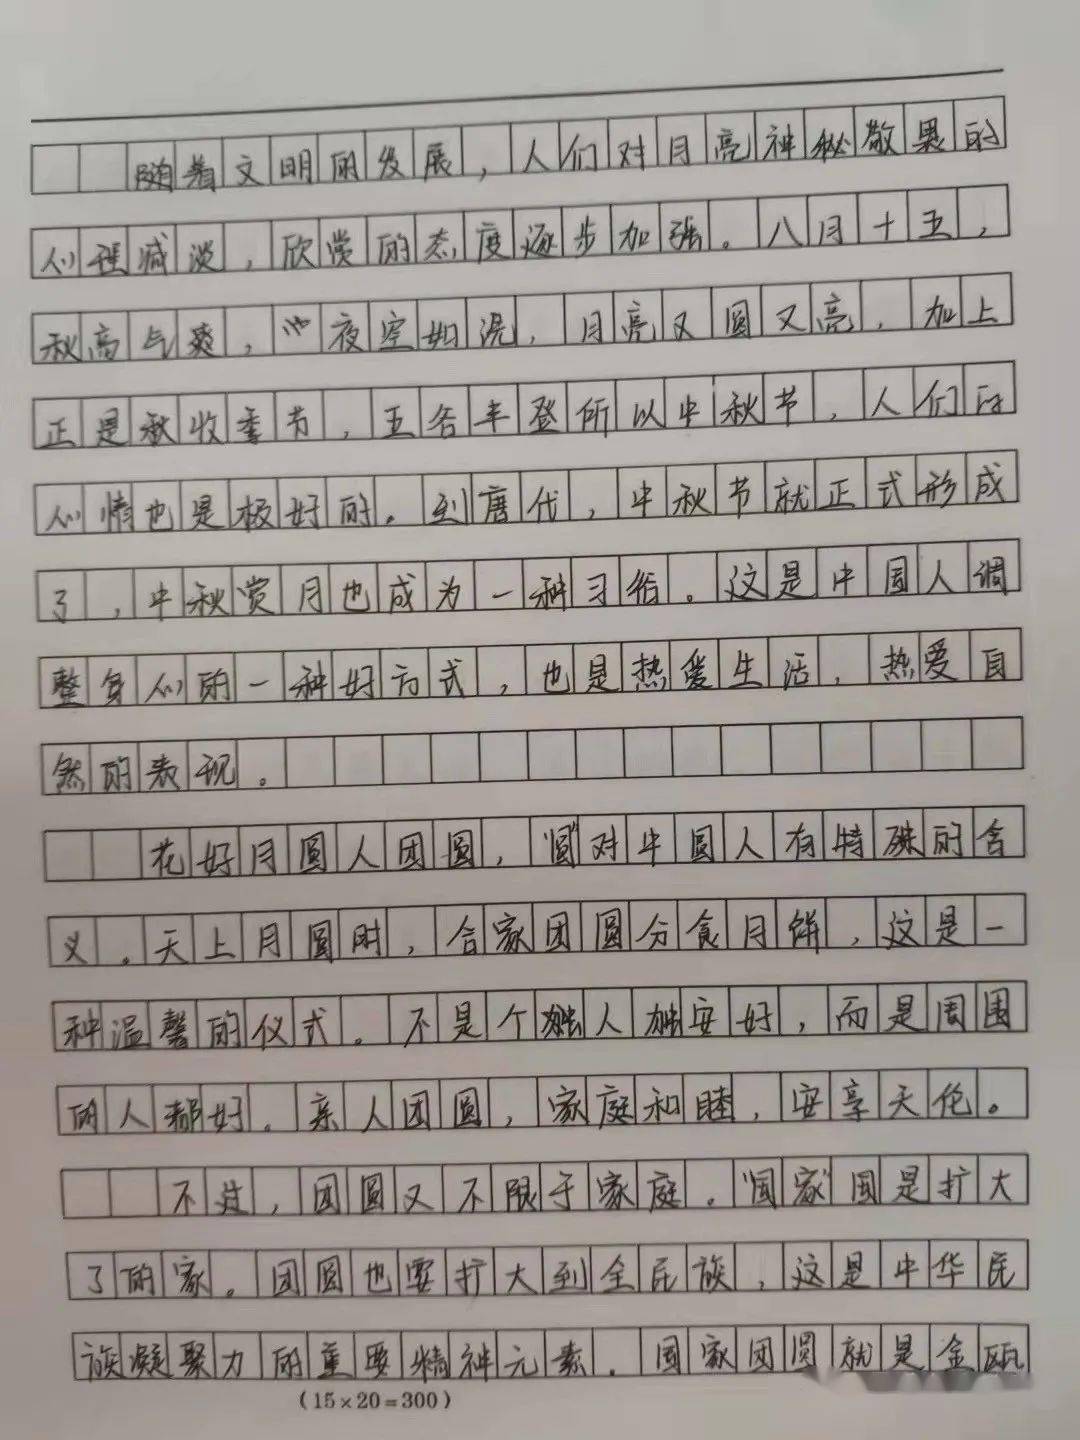 随着文明的发展，人们对月亮神秘敬畏的
心理减淡，欣赏的态度逐步加强。八月十五，
秋高气爽，夜空如洗，月亮又圆又亮，加上
正是秋收季节，五谷丰登所以中秋节，人们的
心情也是极好的。到唐代，中秋节就正式形成
了，中秋赏月也成为一种习俗。这是中国人调
整身心的一种好方式，也是热爱生活，热爱自
然的表现。
花好月圆人团圆，"圆"对中圆人有特殊的含
义。天上月圆时，合家团圆分食月饼，这是一
种温馨的仪式。不是个人安好，而是周围
的人都好。亲人团圆，家庭和睦，安享天伦。
不过，团圆又不限于家庭。"国家"国是扩大
了的家。团圆也要扩大到全民族，这是中华民
族凝聚力的重要精神元素。国家团圆就是金瓯
(15×20=300)